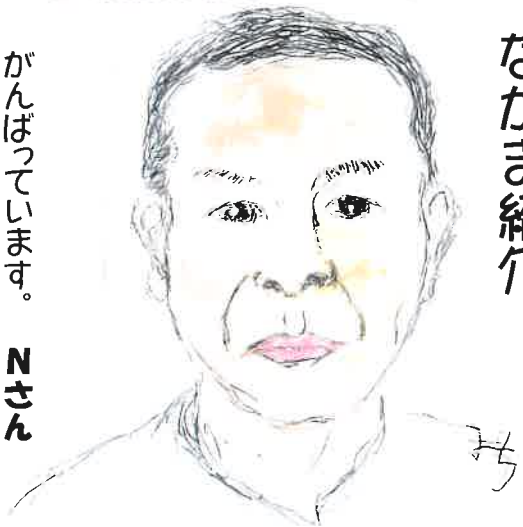 なかま紹介
がんばっています。 Nさん
みち